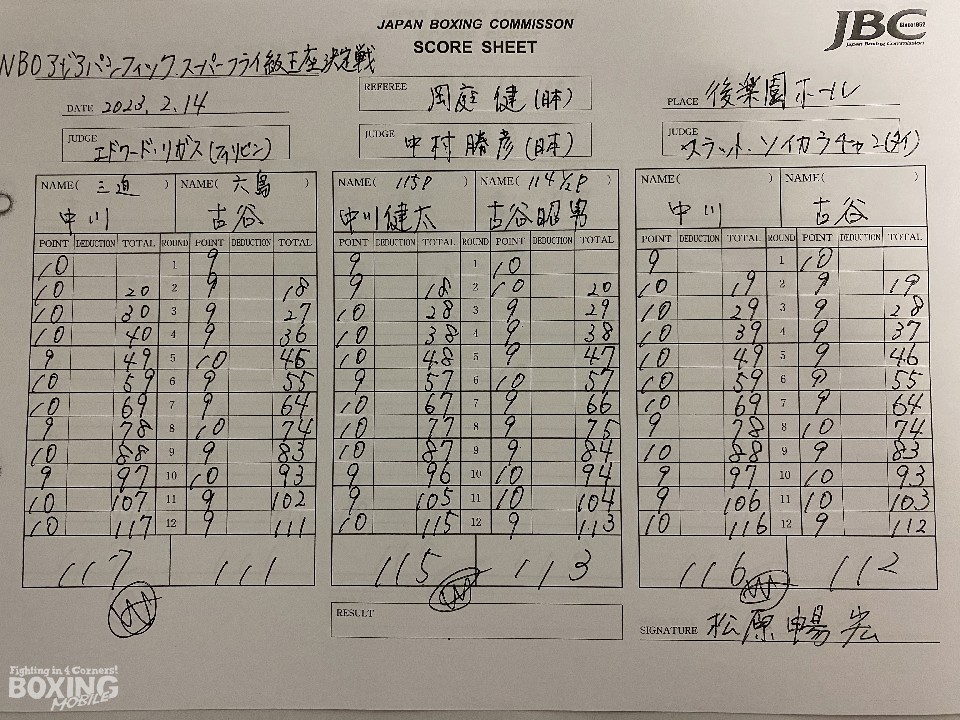 JAPAN BOXING COMMISSON
SCORE SHEET
JBC Since1952
Japan Boxing Commission
WBOアジアパシフィック.スーパーフライ級王座決定戦
DATE 2023. 2. 14
REFEREE 岡庭 健 (日本)
PLACE 後楽園ホール
JUDGE エドワード・リガス (フィリピン)
JUDGE 中村 勝彦 (日本)
JUDGE スラット・ソイカラチャン (タイ)
NAME( 三迫 ) NAME( 六島 ) NAME( 115P ) NAME( 114 1/2P ) NAME( ) NAME( )
中川 古谷 中川健太 古谷昭男 中川 古谷
POINT DEDUCTION TOTAL ROUND POINT DEDUCTION TOTAL POINT DEDUCTION TOTAL ROUND POINT DEDUCTION TOTAL POINT DEDUCTION TOTAL ROUND POINT DEDUCTION TOTAL
10 1 9 9 1 10 9 1 10
10 20 2 9 18 9 18 2 10 20 10 19 2 9 19
10 30 3 9 27 10 28 3 9 29 10 29 3 9 28
10 40 4 9 36 10 38 4 9 38 10 39 4 9 37
9 49 5 10 46 10 48 5 9 47 10 49 5 9 46
10 59 6 9 55 9 57 6 10 57 10 59 6 9 55
10 69 7 9 64 10 67 7 9 66 10 69 7 9 64
9 78 8 10 74 10 77 8 9 75 9 78 8 10 74
10 88 9 9 83 10 87 9 9 84 10 88 9 9 83
9 97 10 10 93 9 96 10 10 94 9 97 10 10 93
10 107 11 9 102 9 105 11 10 104 9 106 11 10 103
10 117 12 9 111 10 115 12 9 113 10 116 12 9 112
117 111 115 113 116 112
RESULT
SIGNATURE 松原 暢宏
Fighting in 4 Corners!
BOXING
MOBILE